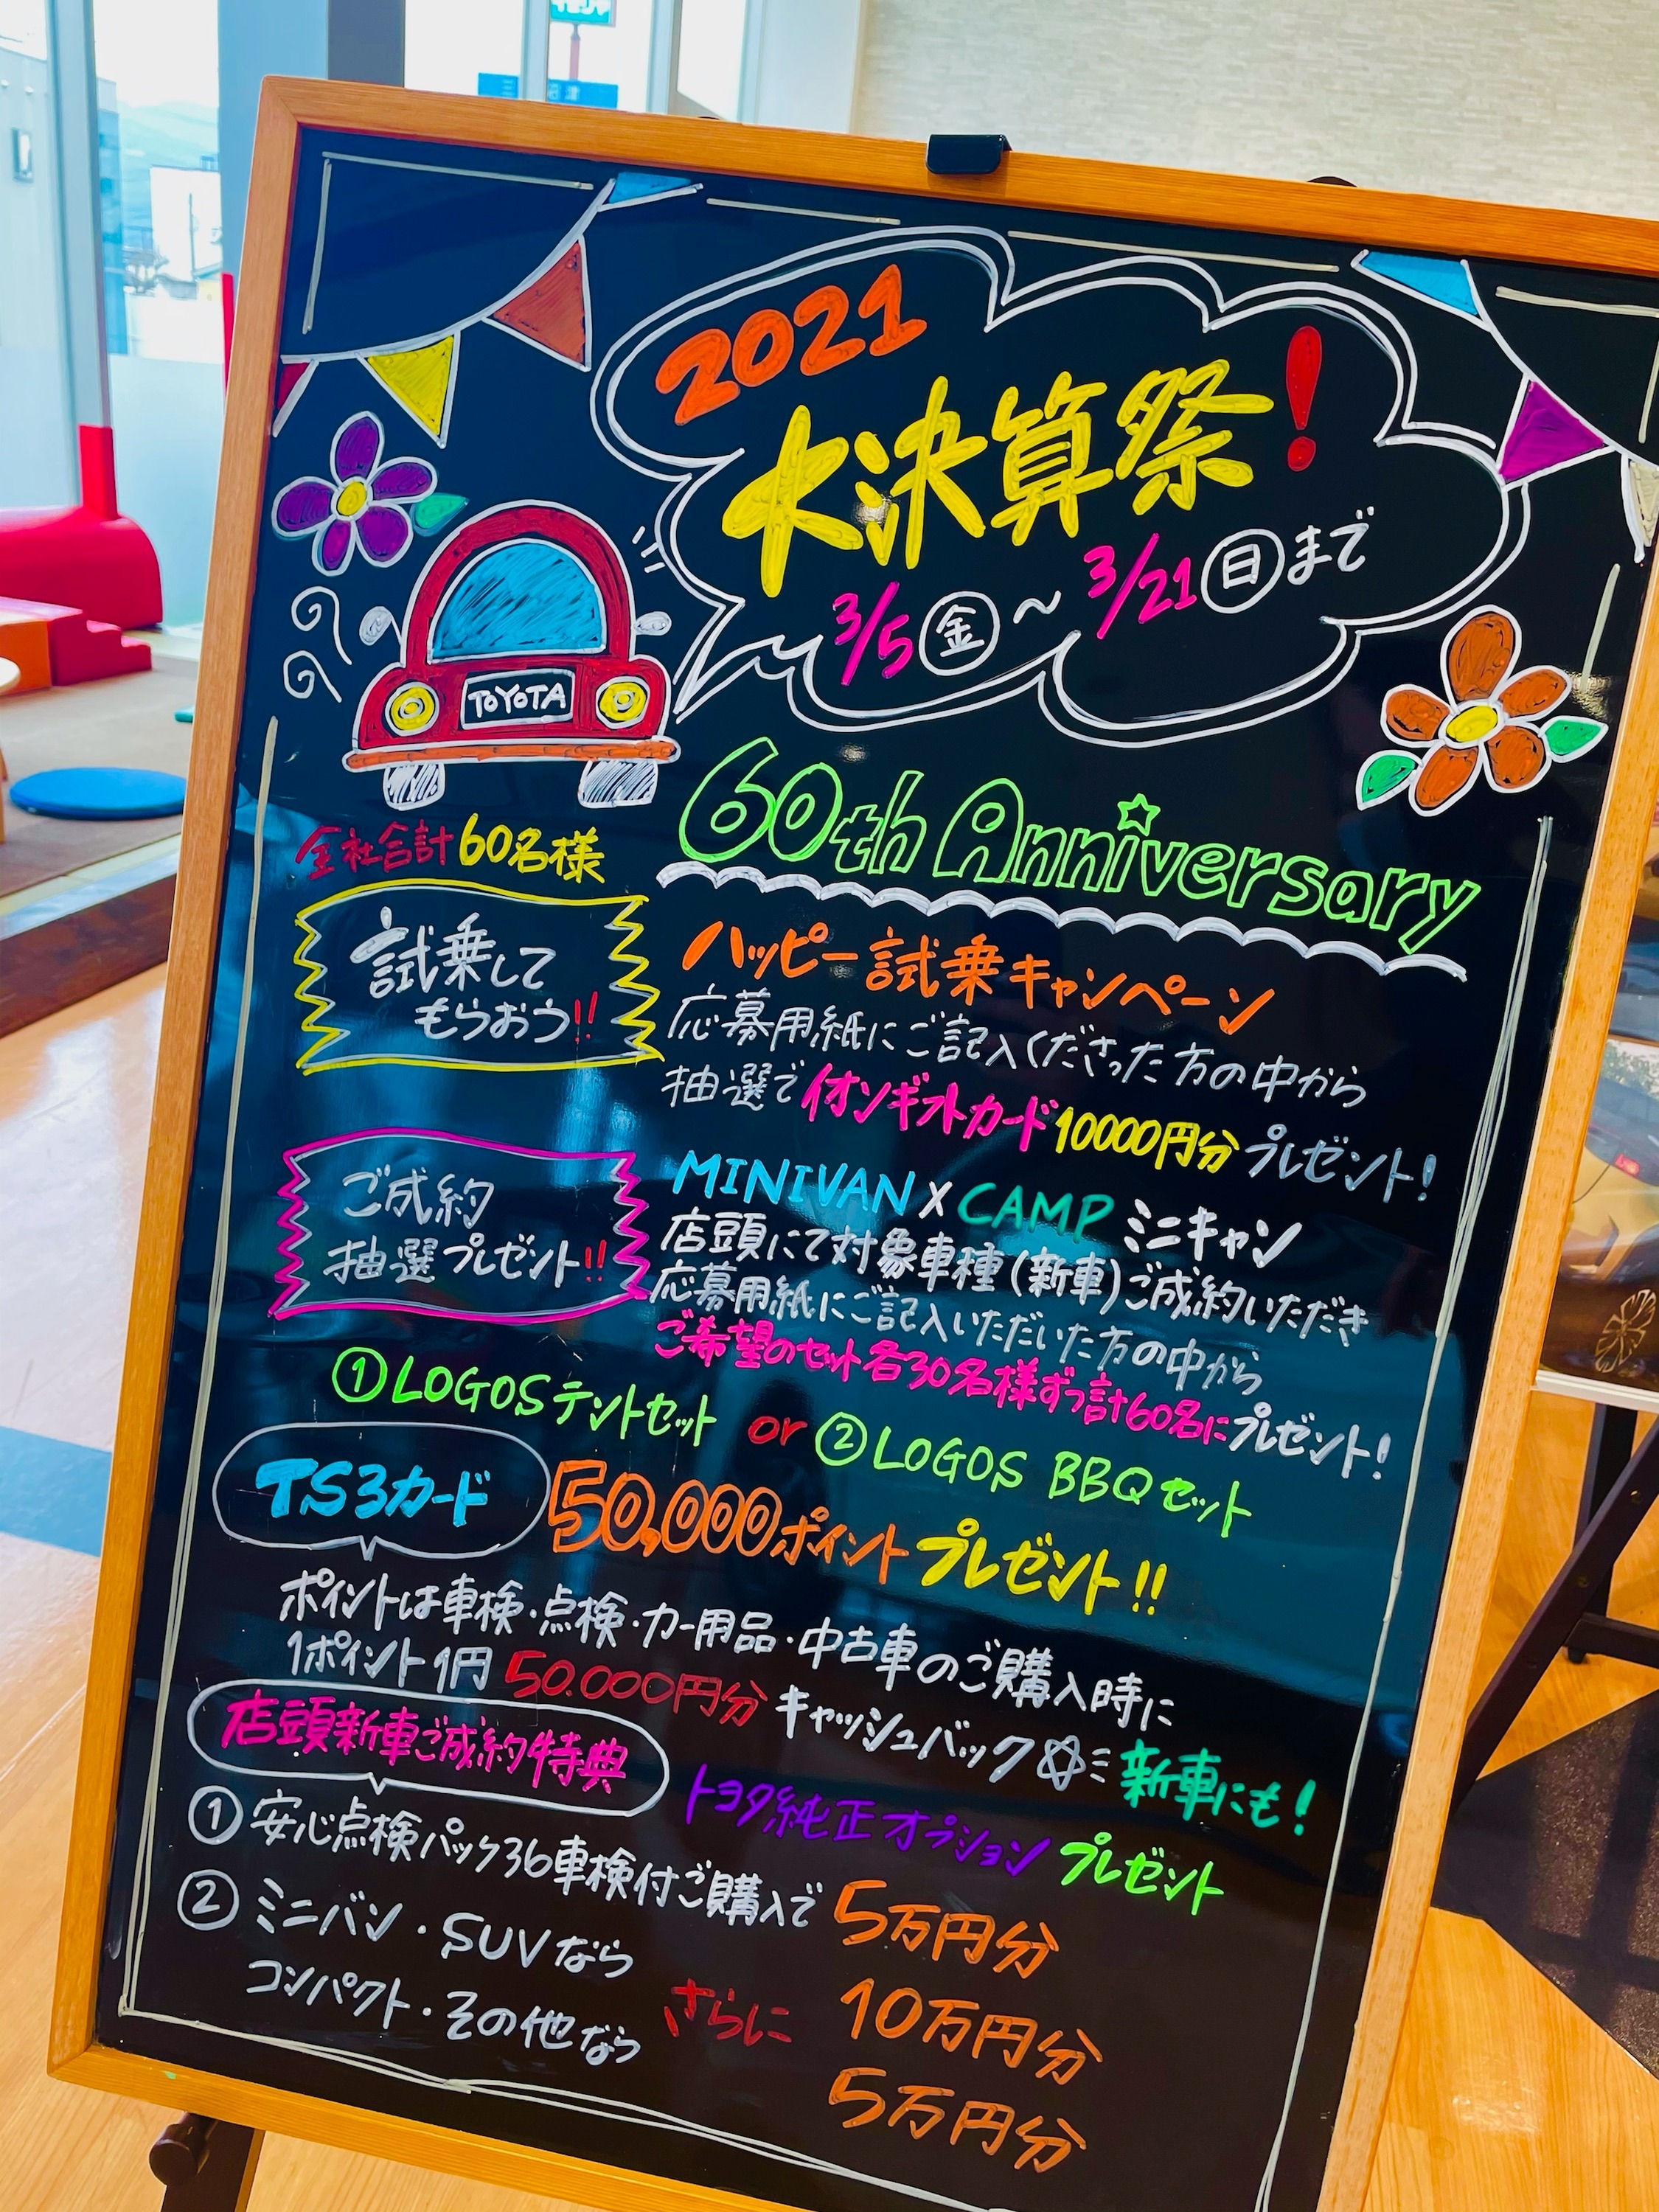 2021
大決算祭!
3/5㊎～3/21㊐まで
TOYOTA
60th Anniversary
全社合計60名様
試乗して
もらおう!!
ハッピー試乗キャンペーン
応募用紙にご記入くださった方の中から
抽選でイオンギフトカード10000円分プレゼント!
ご成約
抽選プレゼント!!
MINIVAN X CAMP ミニキャン
店頭にて対象車種(新車)ご成約いただき
応募用紙にご記入いただいた方の中から
ご希望のセット各30名様ずつ計60名にプレゼント!
①LOGOSテントセット or ②LOGOS BBQセット
TS3カード 50,000ポイントプレゼント!!
ポイントは車検・点検・カー用品・中古車のご購入時に
1ポイント1円 50.000円分 キャッシュバック☆ 新車にも!
店頭新車ご成約特典
トヨタ純正オプション プレゼント
①安心点検パック36車検付ご購入で 5万円分
②ミニバン・SUVなら 10万円分
さらに
コンパクト・その他なら 5万円分